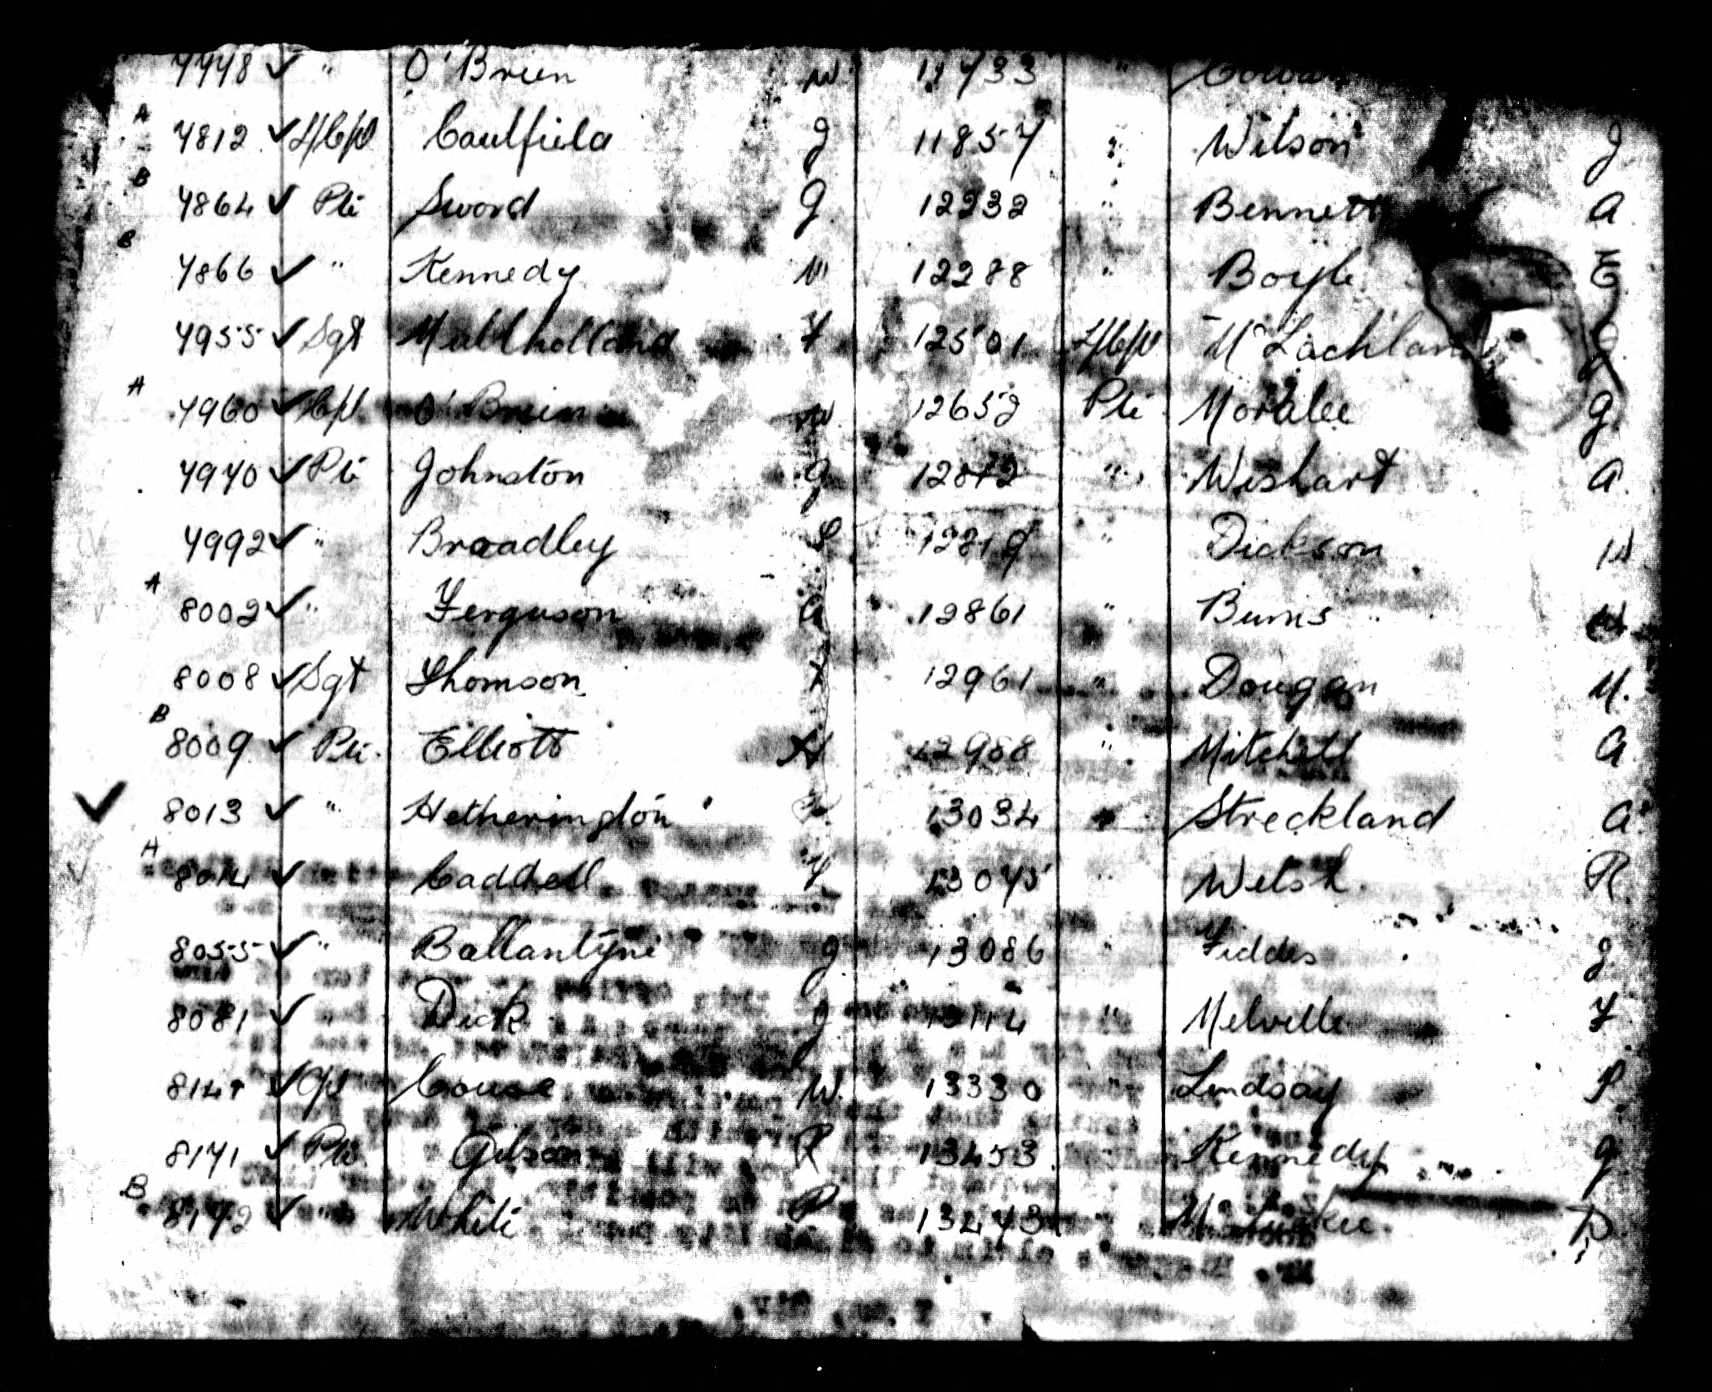 7778 ✓ " O'Brien W. 11733 "
A 7812 ✓ L/Cpl Caulfield J 11857 " Wilson J
B 7864 ✓ Pte Sword J. 12232 " Bennett A
B 7866 ✓ " Kennedy W 12288 " Boyle E
7955 ✓ Sgt Mullholland F 12501 L/Cpl McLachlan J
A 7960 ✓ Cpl O'Brien W. 12652 Pte Moralee J
7970 ✓ Pte Johnston J 12812 " Wishart A
7992 ✓ " Braadley S 12819 " Dickson W
A 8002 ✓ " Ferguson A 12861 " Burns W
8008 ✓ Sgt Thomson T 12961 " Dougan M.
B 8009 ✓ Pte. Elliott H 12988 " Mitchell A
✓ 8013 ✓ " Hetherington 13034 " Streckland A
A 8014 ✓ Caddell F 13075 " Welsh R
8055 ✓ " Ballantyne J 13086 " Fiddes J.
8081 ✓ " Dick J 13114 " Melville F
✓ Cpl W. 13330 " Lindsay P.
8171 ✓ Pte Gibson R 13453 " Kennedy J
B 8172 ✓ " White P 13473 " D.